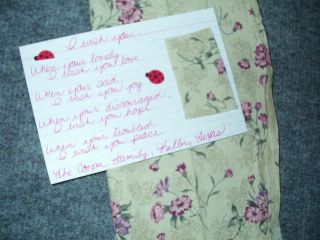 I wish you...
When your lonely
I wish you love
When your sad,
I wish you joy
When your discouraged,
I wish you hope
When your troubled
I wish you peace
The Cooper Family, Keller, Texas